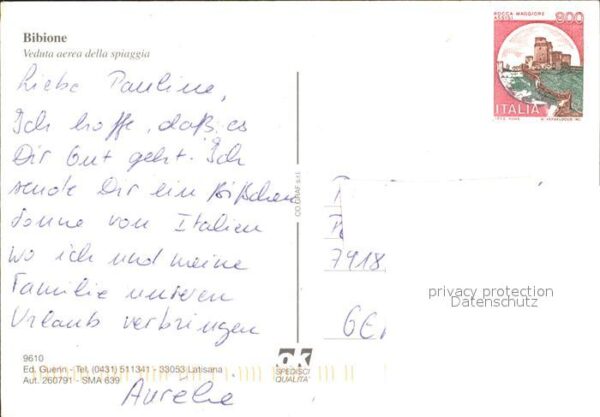 Bibione
Veduta aerea della spiaggia
Liebe Pauline,
Ich hoffe, daß es
Dir Gut geht. Ich
sende Dir ein Bißchen
Sonne von Italien
wo ich und meine
Familie unseren
Urlaub verbringen
Aurelia
9610
Ed. Guerin - Tel. (0431) 511341 - 33053 Latisana
Aut. 260791 - SMA 639
CO.GRAF s.r.l.
ok
SPEDISCI
QUALITÀ
ROCCA MAGGIORE
ASSISI
900
ITALIA
7918
GE
privacy protection
Datenschutz